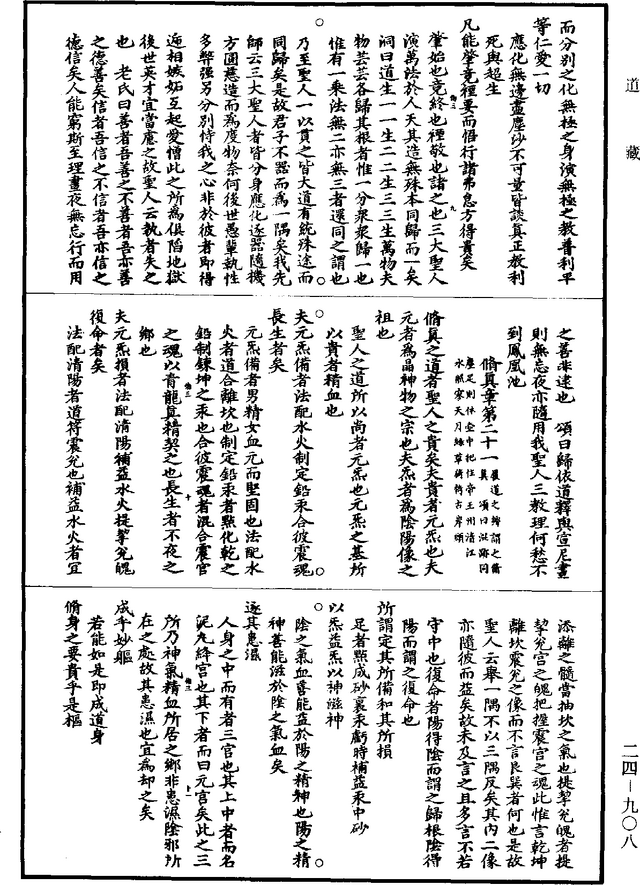 道藏
而分別之化無極之身演無極之教普利平
等仁愛一切
應化無邊盡塵沙不可量皆談真正教利
死與超生
凡能肇竟禋要而悟行諸弗怠方得貴矣
肇始也竟終也禋敬也諸之也三大聖人
演萬法於人天其造無殊本同歸而一矣
洞曰道生一一生二二生三三生萬物夫
物芸芸各歸其根者惟一分衆衆歸一也
惟有一乘法無二亦無三者還同之謂也
乃至聖人一以貫之皆大道有統殊途而
同歸矣是故君子不器而為一隅矣我先
師云三大聖人者皆分身應化逐器隨機
方圓慈造而為度物柰何後世愚輩執性
多弊强另分別恃我之心非於彼者即得
遞相嫉妬互起愛憎此之所為俱陷地獄
後世英才宜當慮之故聖人云執者失之
也　老氏曰善者吾善之不善者吾亦善
之德善矣信者吾信之不信者吾亦信之
德信矣人能窮斯至理晝夜無忘行而用
之善非逮也　頌曰歸依道釋與宣尼晝
則無忘夜亦隨用我聖人三教理何愁不
到鳳凰池
脩真章第二十一
脩真之道者聖人之貴矣夫貴者元炁也夫
元者為晶神物之宗也夫炁者為陰陽像之
祖也
聖人之道所以尚者元炁也元炁之基所
以貴者精血也
夫元炁備者法配水火制定鉛汞合彼震魂
長生者矣
元炁備者男精女血元而堅固也法配水
火者道合離坎也制定鉛汞者點化乾之
鉛制鍊坤之汞也合彼震魂者混合震宫
之魂以青龍真精契之也長生者不夜之
鄉也
夫元炁損者法配清陽補益水火提挈兊魄
復命者矣
法配清陽者道符震兊也補益水火者宜
添離之髓當抽坎之氣也提挈兊魄者提
挈兊宫之魄把握震宫之魂此惟言乾坤
離坎震兊之像而不言艮巽者何也是故
聖人云舉一隅不以三隅反矣其内二像
亦隨彼而益矣故未及言之且多言不若
守中也復命者陽得陰而謂之歸根陰得
陽而謂之復命也
所謂定其所備和其所損
足者點成砂裏汞虧時補益汞中砂
以炁益炁以神滋神
陰之氣血善能益於陽之精神也陽之精
神善能滋於陰之氣血矣
逐其患濕
人身之中而有者三宫也其上中者而名
泥丸絳宫也其下者而曰元宫矣此之三
所乃神氣精血所居之鄉非患濕陰邪所
在之處故其患濕也宜為却之矣
成乎妙軀
若能如是即成道身
脩身之要貴乎是樞
二四－九〇八